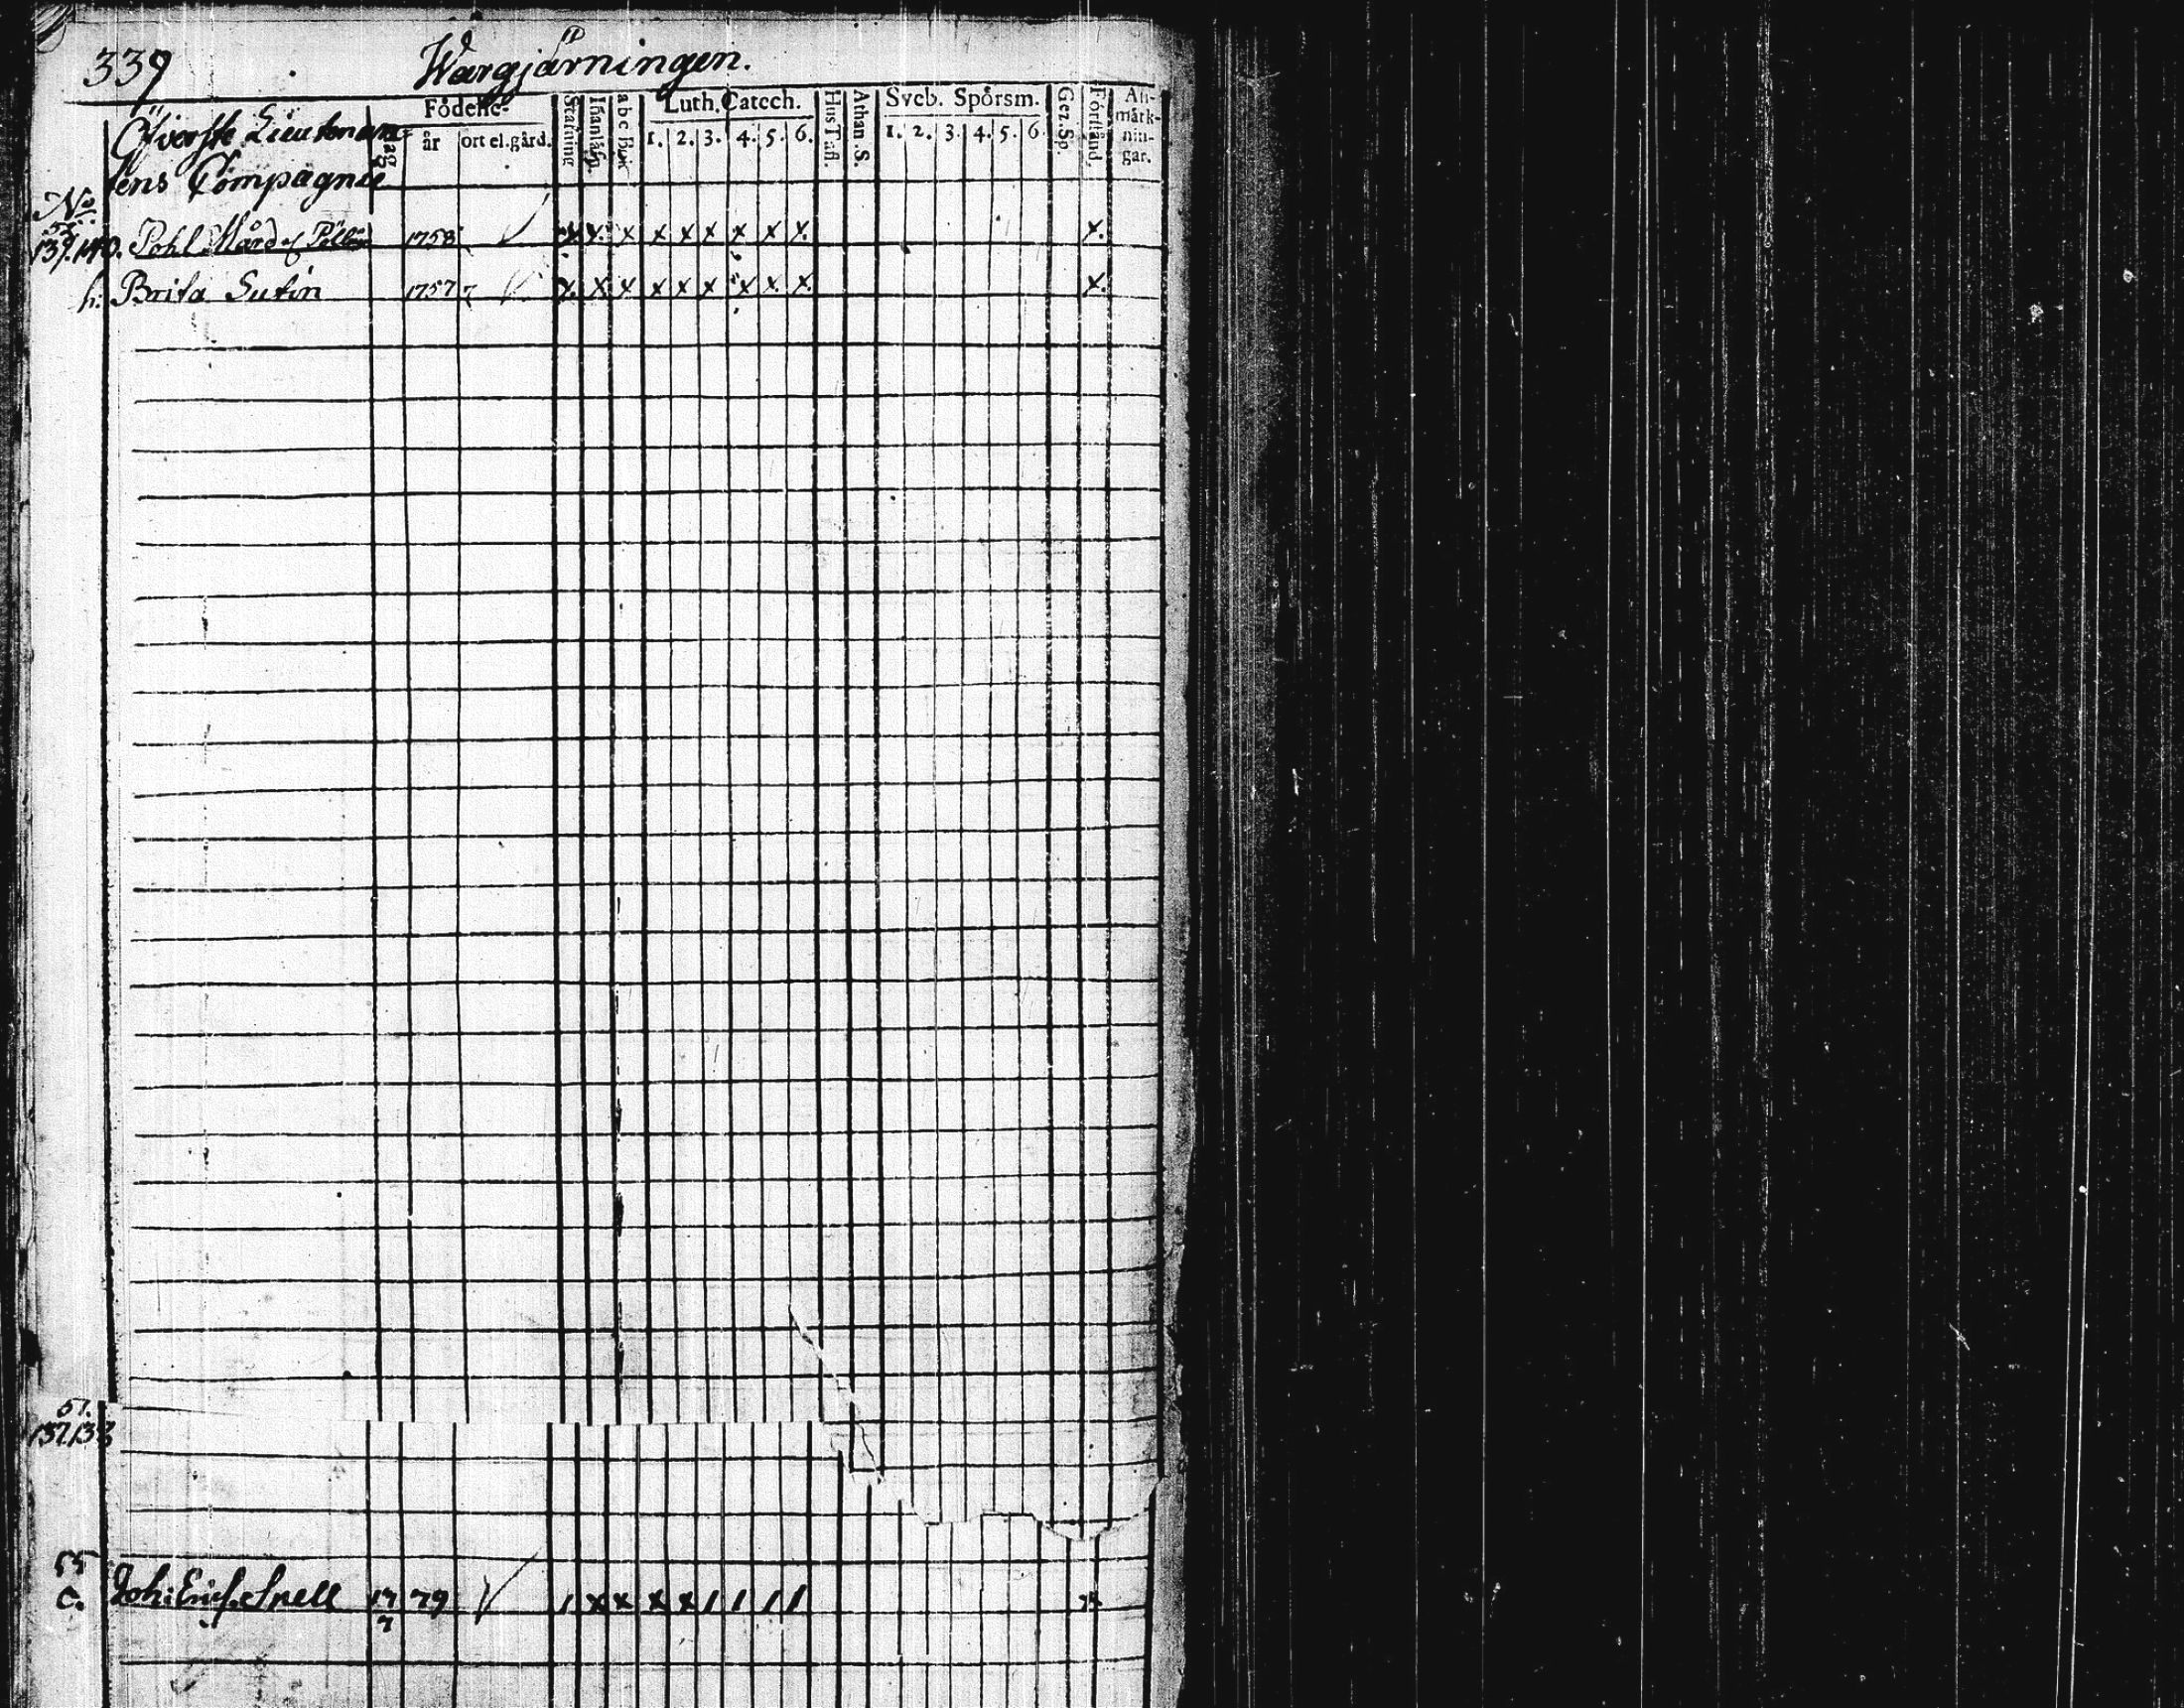 339 Wargjärningen.
Öfverste Lieutenan-
tens Compagnie
Födelse-
dag år ort el. gård.
Stafning
Inanläsn.
abc Bok
Luth. Catech.
1. 2. 3. 4. 5. 6.
Hus Tafl.
Athan. S.
Sveb. Spörsm.
1. 2. 3. 4. 5. 6
Gez. Sp.
Förstånd.
An-
märk-
nin-
gar.
No.
139. 140. Pohl Mård 1758 x x x x x x x x x x.
h: Brita Sutin 1757 x x x x x x x x x x.
51.
137.138
55
c. Joh: Eric Snell 17/7 79 V 1 x x x x 1 1 1 1 x